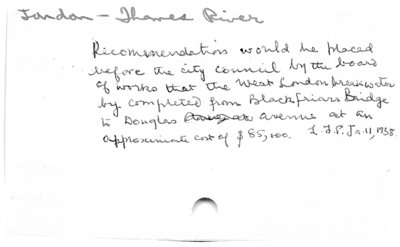 London - Thames River
Ricomendation would be placed
before the city council by the board
of works that the West London breakwater
by completed from Blackfriars Bridge
to Douglas avenue at an
approximate cost of $85,000. L.F.P. Ja. 11, 1938.